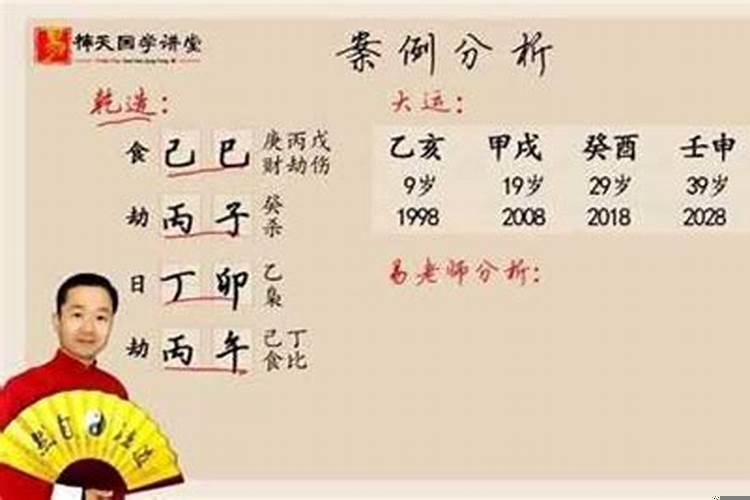 易 神天国学讲堂
案例分析
乾造:
食 己巳 庚丙戊
财劫伤
劫 丙子 癸
杀
日 丁卯 乙
枭
劫 丙午 己丁
食比
大运:
乙亥 甲戌 癸酉 壬申
9岁 19岁 29岁 39岁
1998 2008 2018 2028
易老师分析: